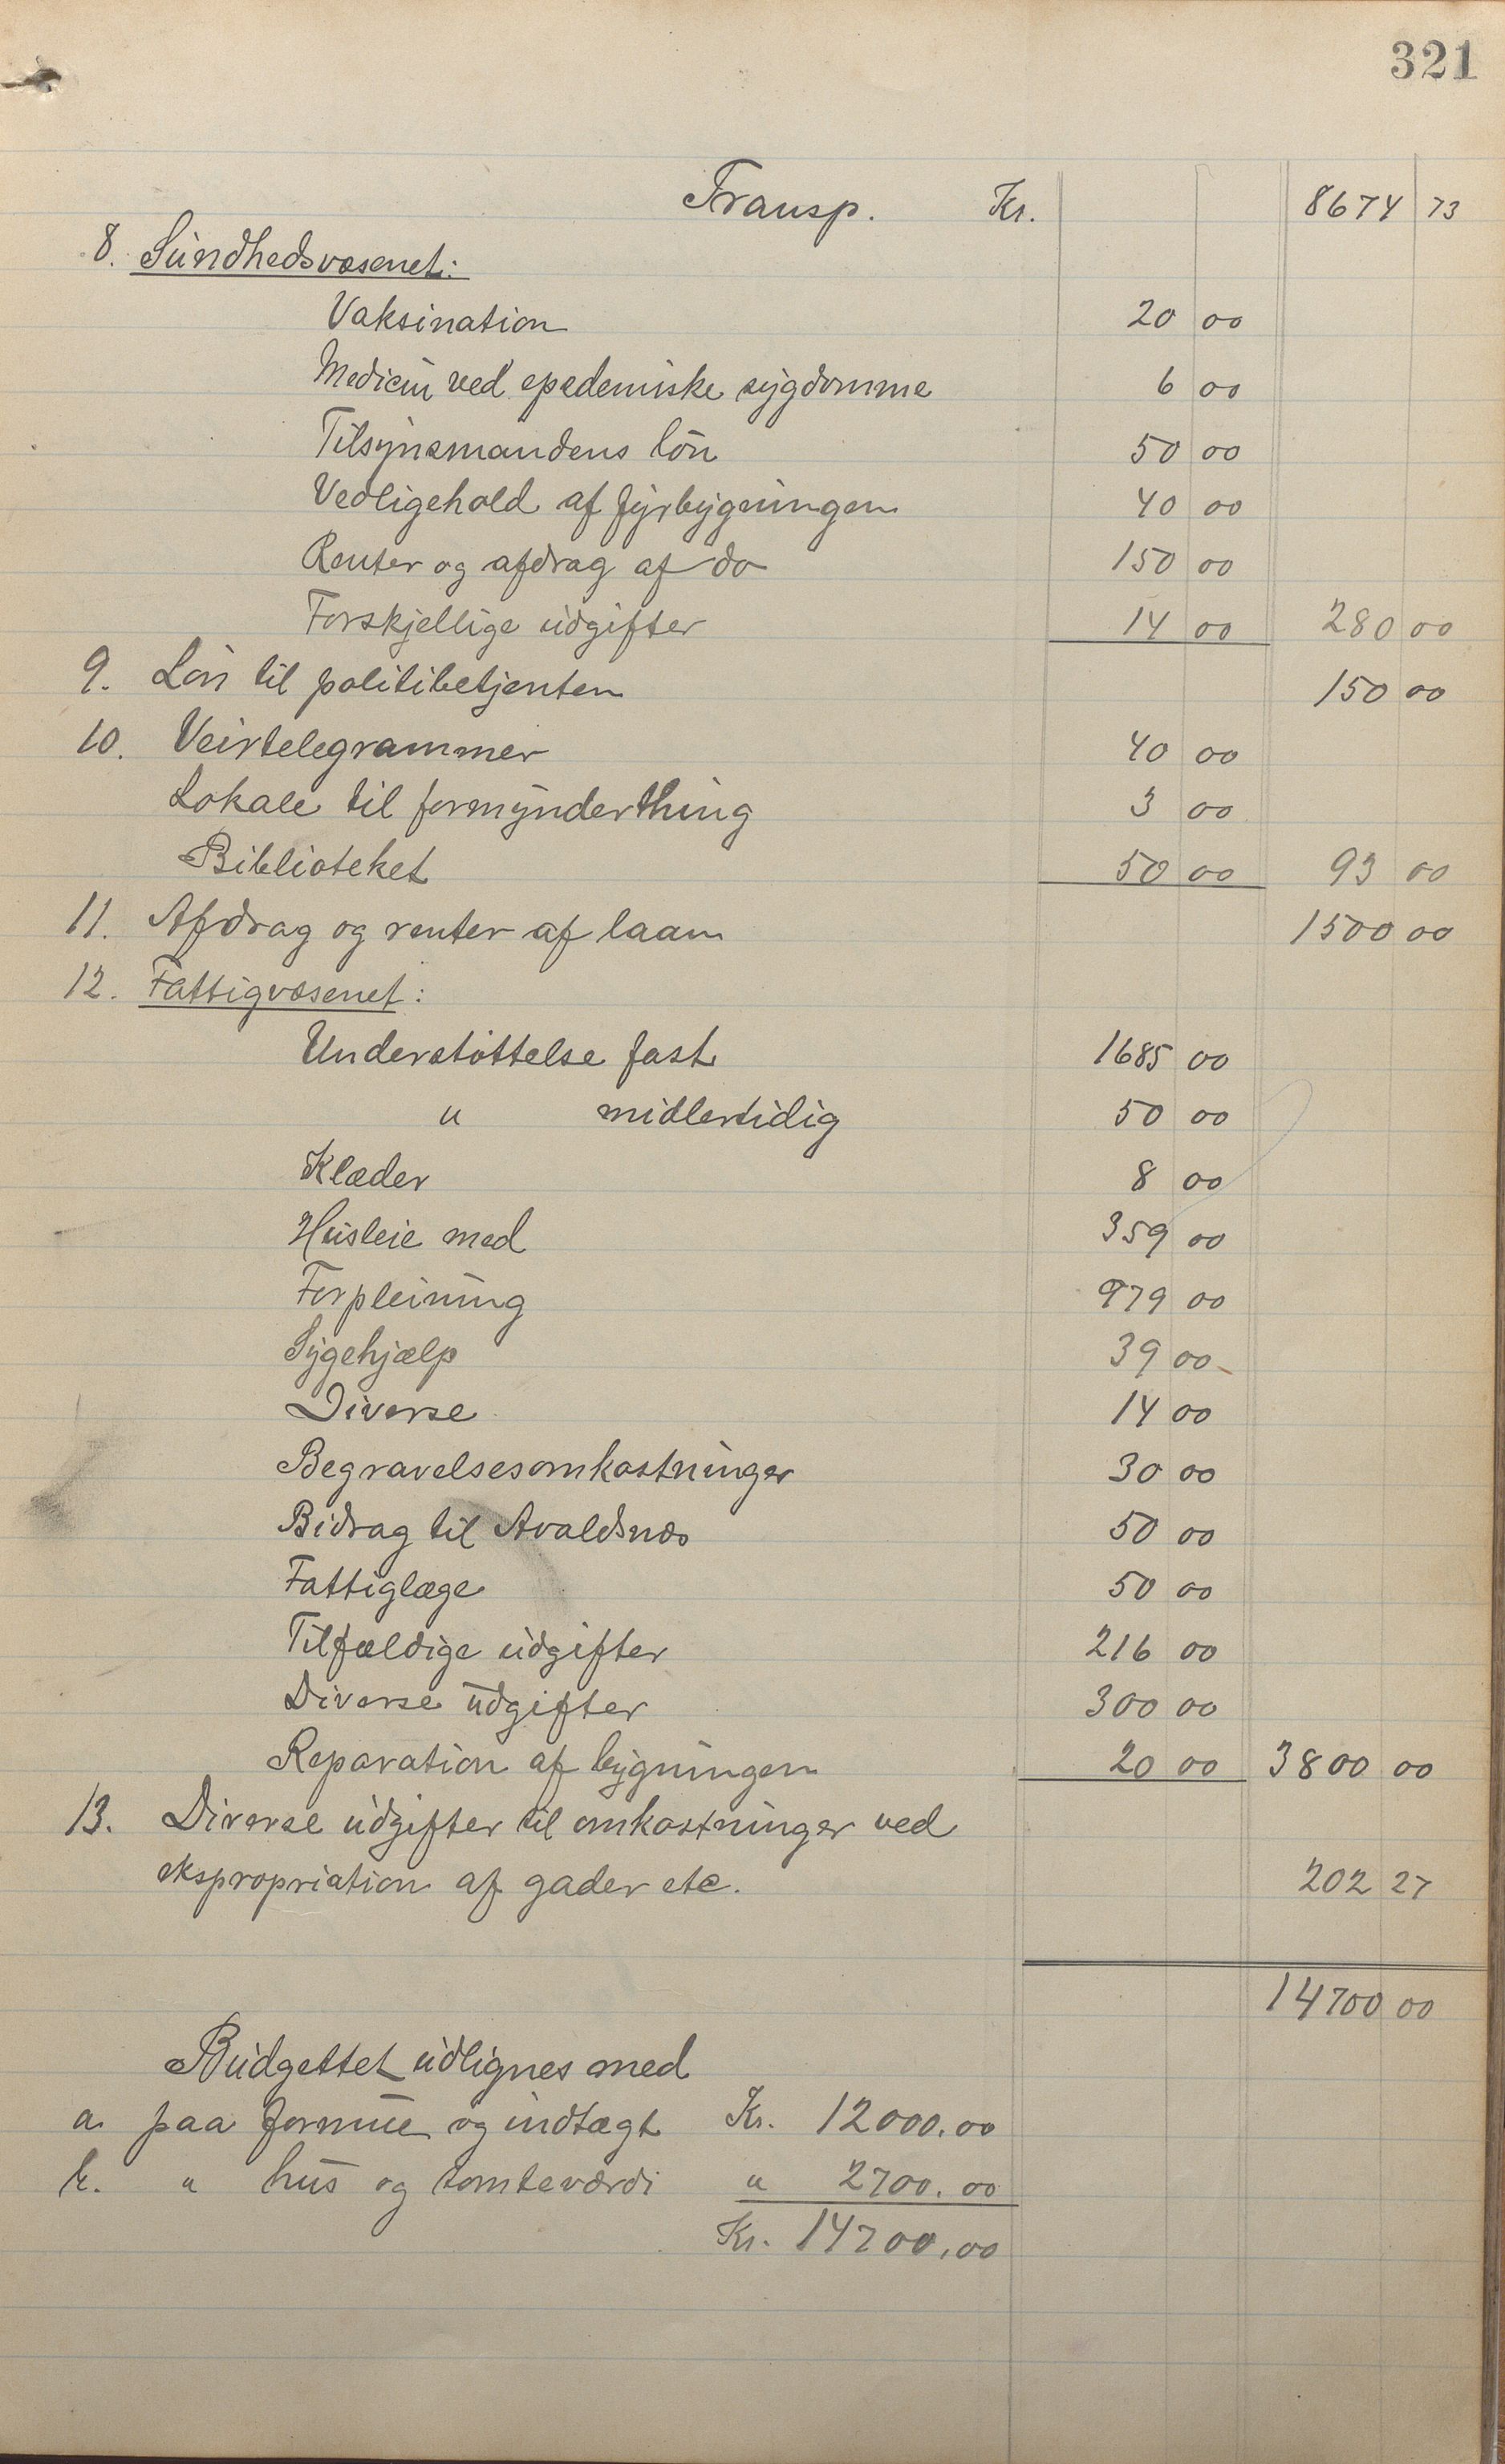 321
Transp. Kr. 8674 73
8. Sundhedsvæsenet:
Vaksination 20 00
Medicin ved epedemiske sygdomme 6 00
Tilsynsmandens lön 50 00
Vedligehold af fyrbygningen 40 00
Renter og afdrag af do 150 00
Forskjellige udgifter 14 00 280 00
9. Lön til politibetjenten 150 00
10. Veirtelegrammer 40 00
Lokale til formynderthing 3 00
Biblioteket 50 00 93 00
11. Afdrag og renter af laan 1500 00
12. Fattigvæsenet:
Understöttelse fast 1685 00
" midlertidig 50 00
Klæder 8 00
Husleie med 359 00
Forpleining 979 00
Sygehjælp 39 00
Diverse 14 00
Begravelsesomkostninger 30 00
Bidrag til Avaldsnæs 50 00
Fattiglæge 50 00
Tilfældige udgifter 216 00
Diverse udgifter 300 00
Reparation af bygningen 20 00 3800 00
13. Diverse udgifter til omkostninger ved
ekspropriation af gader etc. 202 27
14700 00
Budgettet udlignes med
a. paa formue og indtægt Kr. 12000.00
b. " hus og tomteværdi " 2700.00
Kr. 14700.00